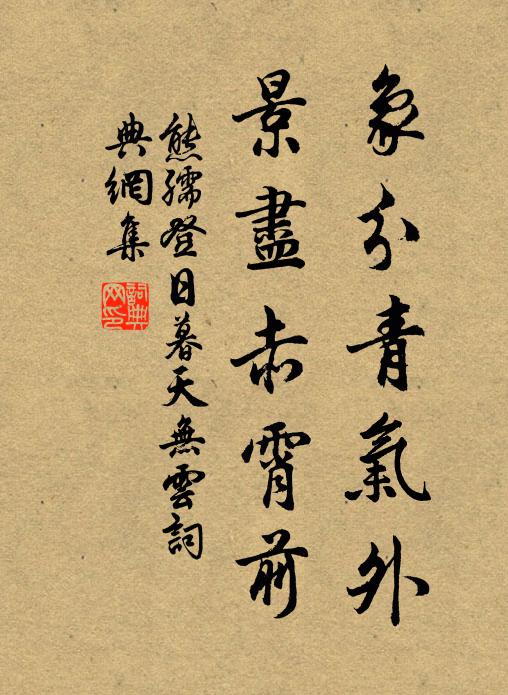 象分青氣外
景盡赤霄前
熊孺登日暮天無雲詞
典網集
詞典
网印